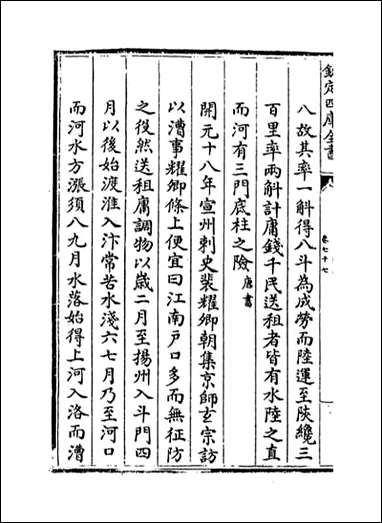 欽定四庫全書
卷七十七
八故其率一斛得八斗為成勞而陸運至陜纔三
百里率兩斛計庸錢千民送租者皆有水陸之直
而河有三門底柱之險唐書
開元十八年宣州刺史裴耀卿朝集京師玄宗訪
以漕事耀卿條上便宜曰江南戸口多而無征防
之役然送租庸調物以歳二月至揚州入斗門四
月以後始渡淮入汴常苦水淺六七月乃至河口
而河水方漲須八九月水落始得上河入洛而漕